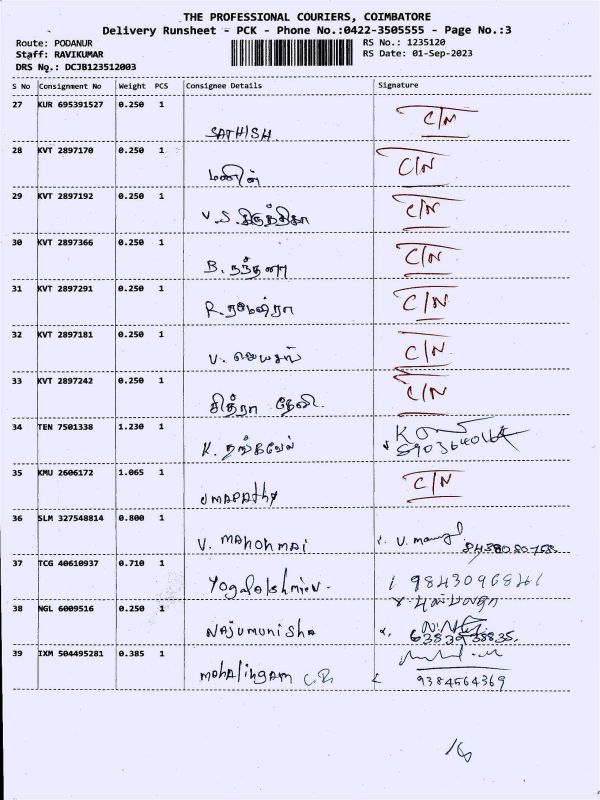 THE PROFESSIONAL COURIERS, COIMBATORE
Delivery Runsheet - PCK - Phone No.:0422-3505555 - Page No.:3
Route: PODANUR RS No.: 1235120
Staff: RAVIKUMAR RS Date: 01-Sep-2023
DRS No.: DCJB123512003
S No Consignment No Weight PCS Consignee Details Signature
27 KUR 695391527 0.250 1 C/N
SATHISH
28 KVT 2897170 0.250 1 C/N
29 KVT 2897192 0.250 1 C/N
V.S.
30 KVT 2897366 0.250 1 C/N
B. நந்தனா
31 KVT 2897291 0.250 1 C/N
R.
32 KVT 2897181 0.250 1 C/N
V.
33 KVT 2897242 0.250 1 C/N
சித்ரா தேவி
34 TEN 7501338 1.230 1
K. தங்கவேல்
35 KMU 2606172 1.065 1 C/N
UMAPATHY
36 SLM 327548814 0.800 1
V. MANONMAI V.
37 TCG 40610937 0.710 1
Yogalakshmi
38 NGL 6009516 0.250 1
NAJUMUNISHA
39 IXM 504495281 0.385 1
MOHALINGAM C.R.
9384564369